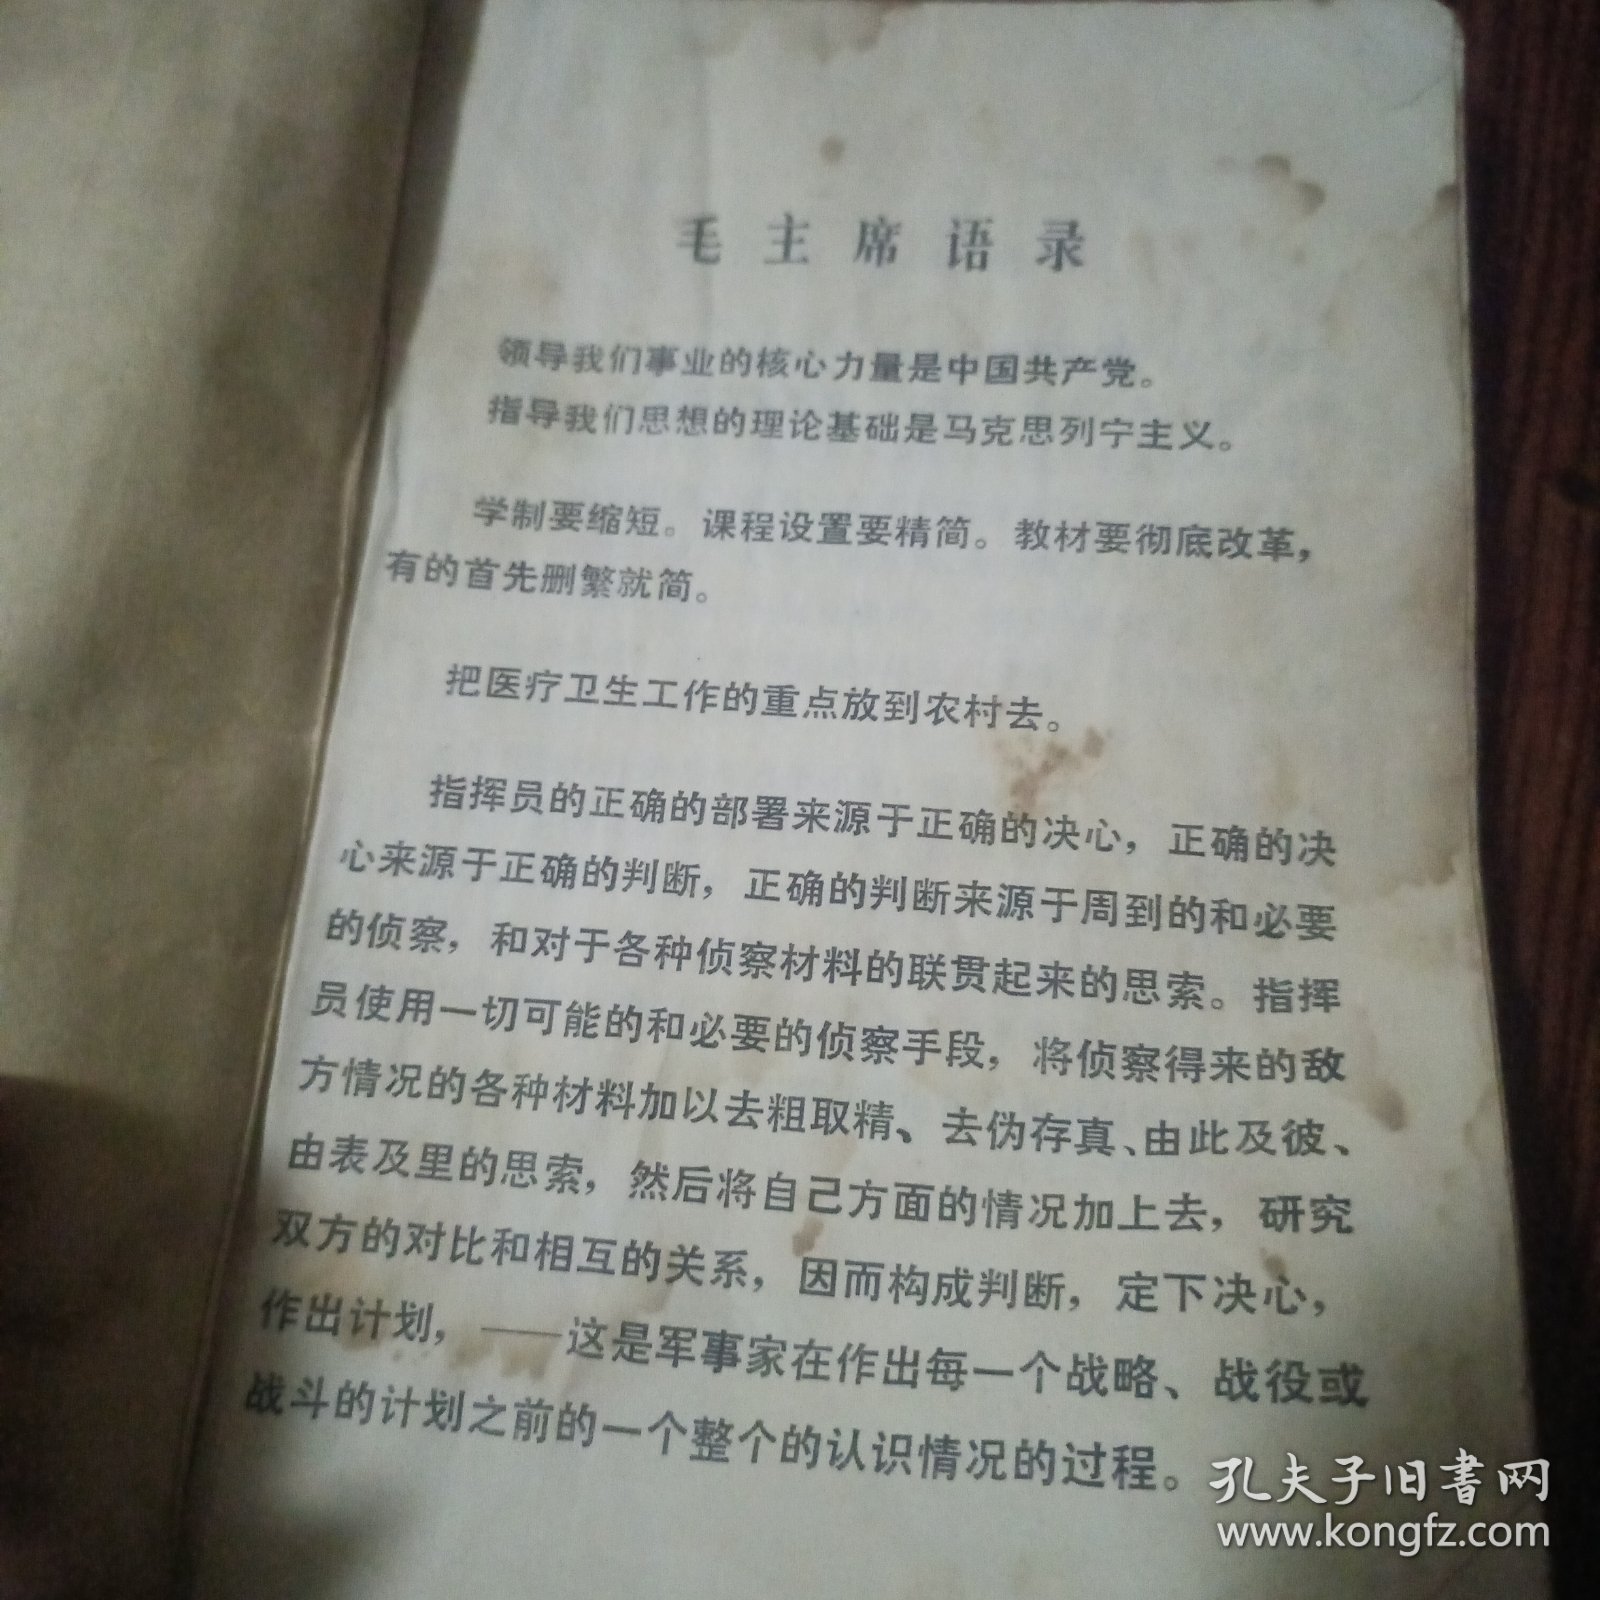 毛主席语录
领导我们事业的核心力量是中国共产党。
指导我们思想的理论基础是马克思列宁主义。
学制要缩短。课程设置要精简。教材要彻底改革，
有的首先删繁就简。
把医疗卫生工作的重点放到农村去。
指挥员的正确的部署来源于正确的决心，正确的决
心来源于正确的判断，正确的判断来源于周到的和必要
的侦察，和对于各种侦察材料的联贯起来的思索。指挥
员使用一切可能的和必要的侦察手段，将侦察得来的敌
方情况的各种材料加以去粗取精、去伪存真、由此及彼、
由表及里的思索，然后将自己方面的情况加上去，研究
双方的对比和相互的关系，因而构成判断，定下决心，
作出计划，——这是军事家在作出每一个战略、战役或
战斗的计划之前的一个整个的认识情况的过程。
孔夫子旧书网
www.kongfz.com